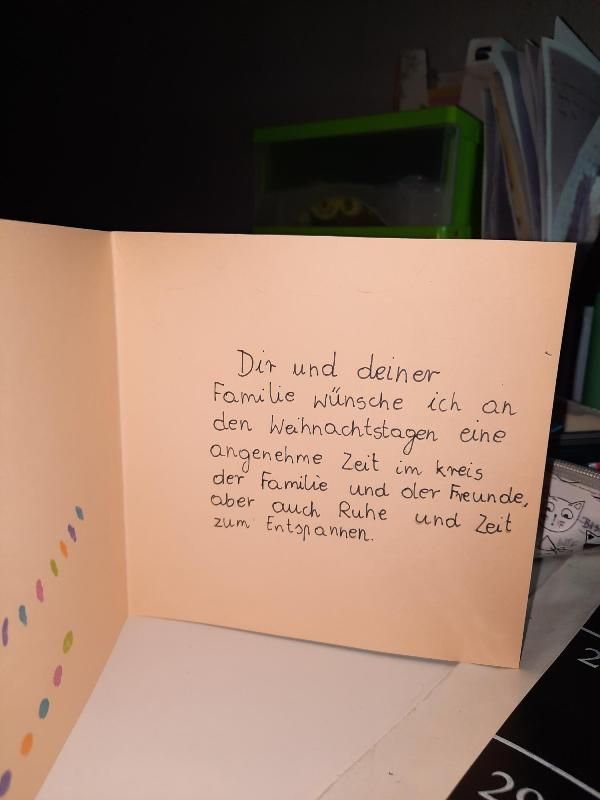 Dir und deiner
Familie wünsche ich an
den Weihnachtstagen eine
angenehme Zeit im kreis
der Familie und der Freunde,
aber auch Ruhe und Zeit
zum Entspannen.
2
29